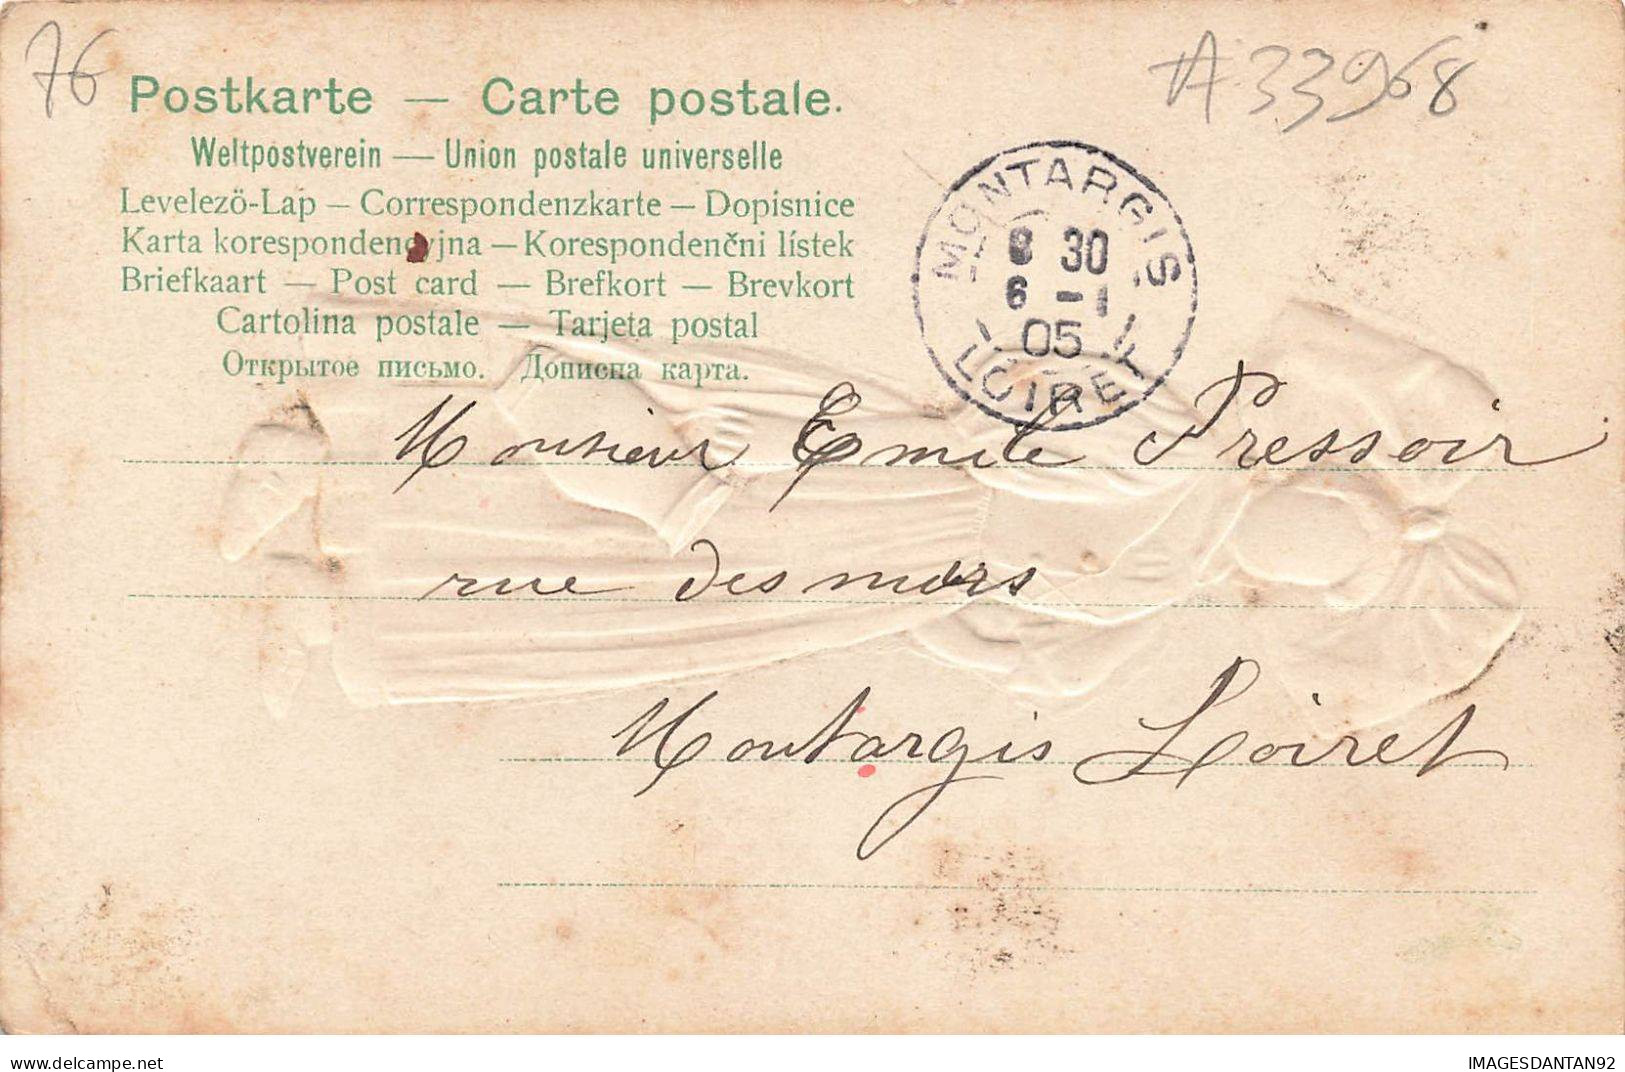 76
A 33968
Postkarte — Carte postale.
Weltpostverein — Union postale universelle
Levelezö-Lap — Correspondenzkarte — Dopisnice
Karta korespondencyjna — Korespondenčni lístek
Briefkaart — Post card — Brefkort — Brevkort
Cartolina postale — Tarjeta postal
Открытое письмо. Дописна карта.
MONTARGIS
8 30
6 - 1
05
LOIRET
Monsieur Emile Pressoir
rue des murs
Montargis Loiret
delcampe.net
IMAGESDANTAN92